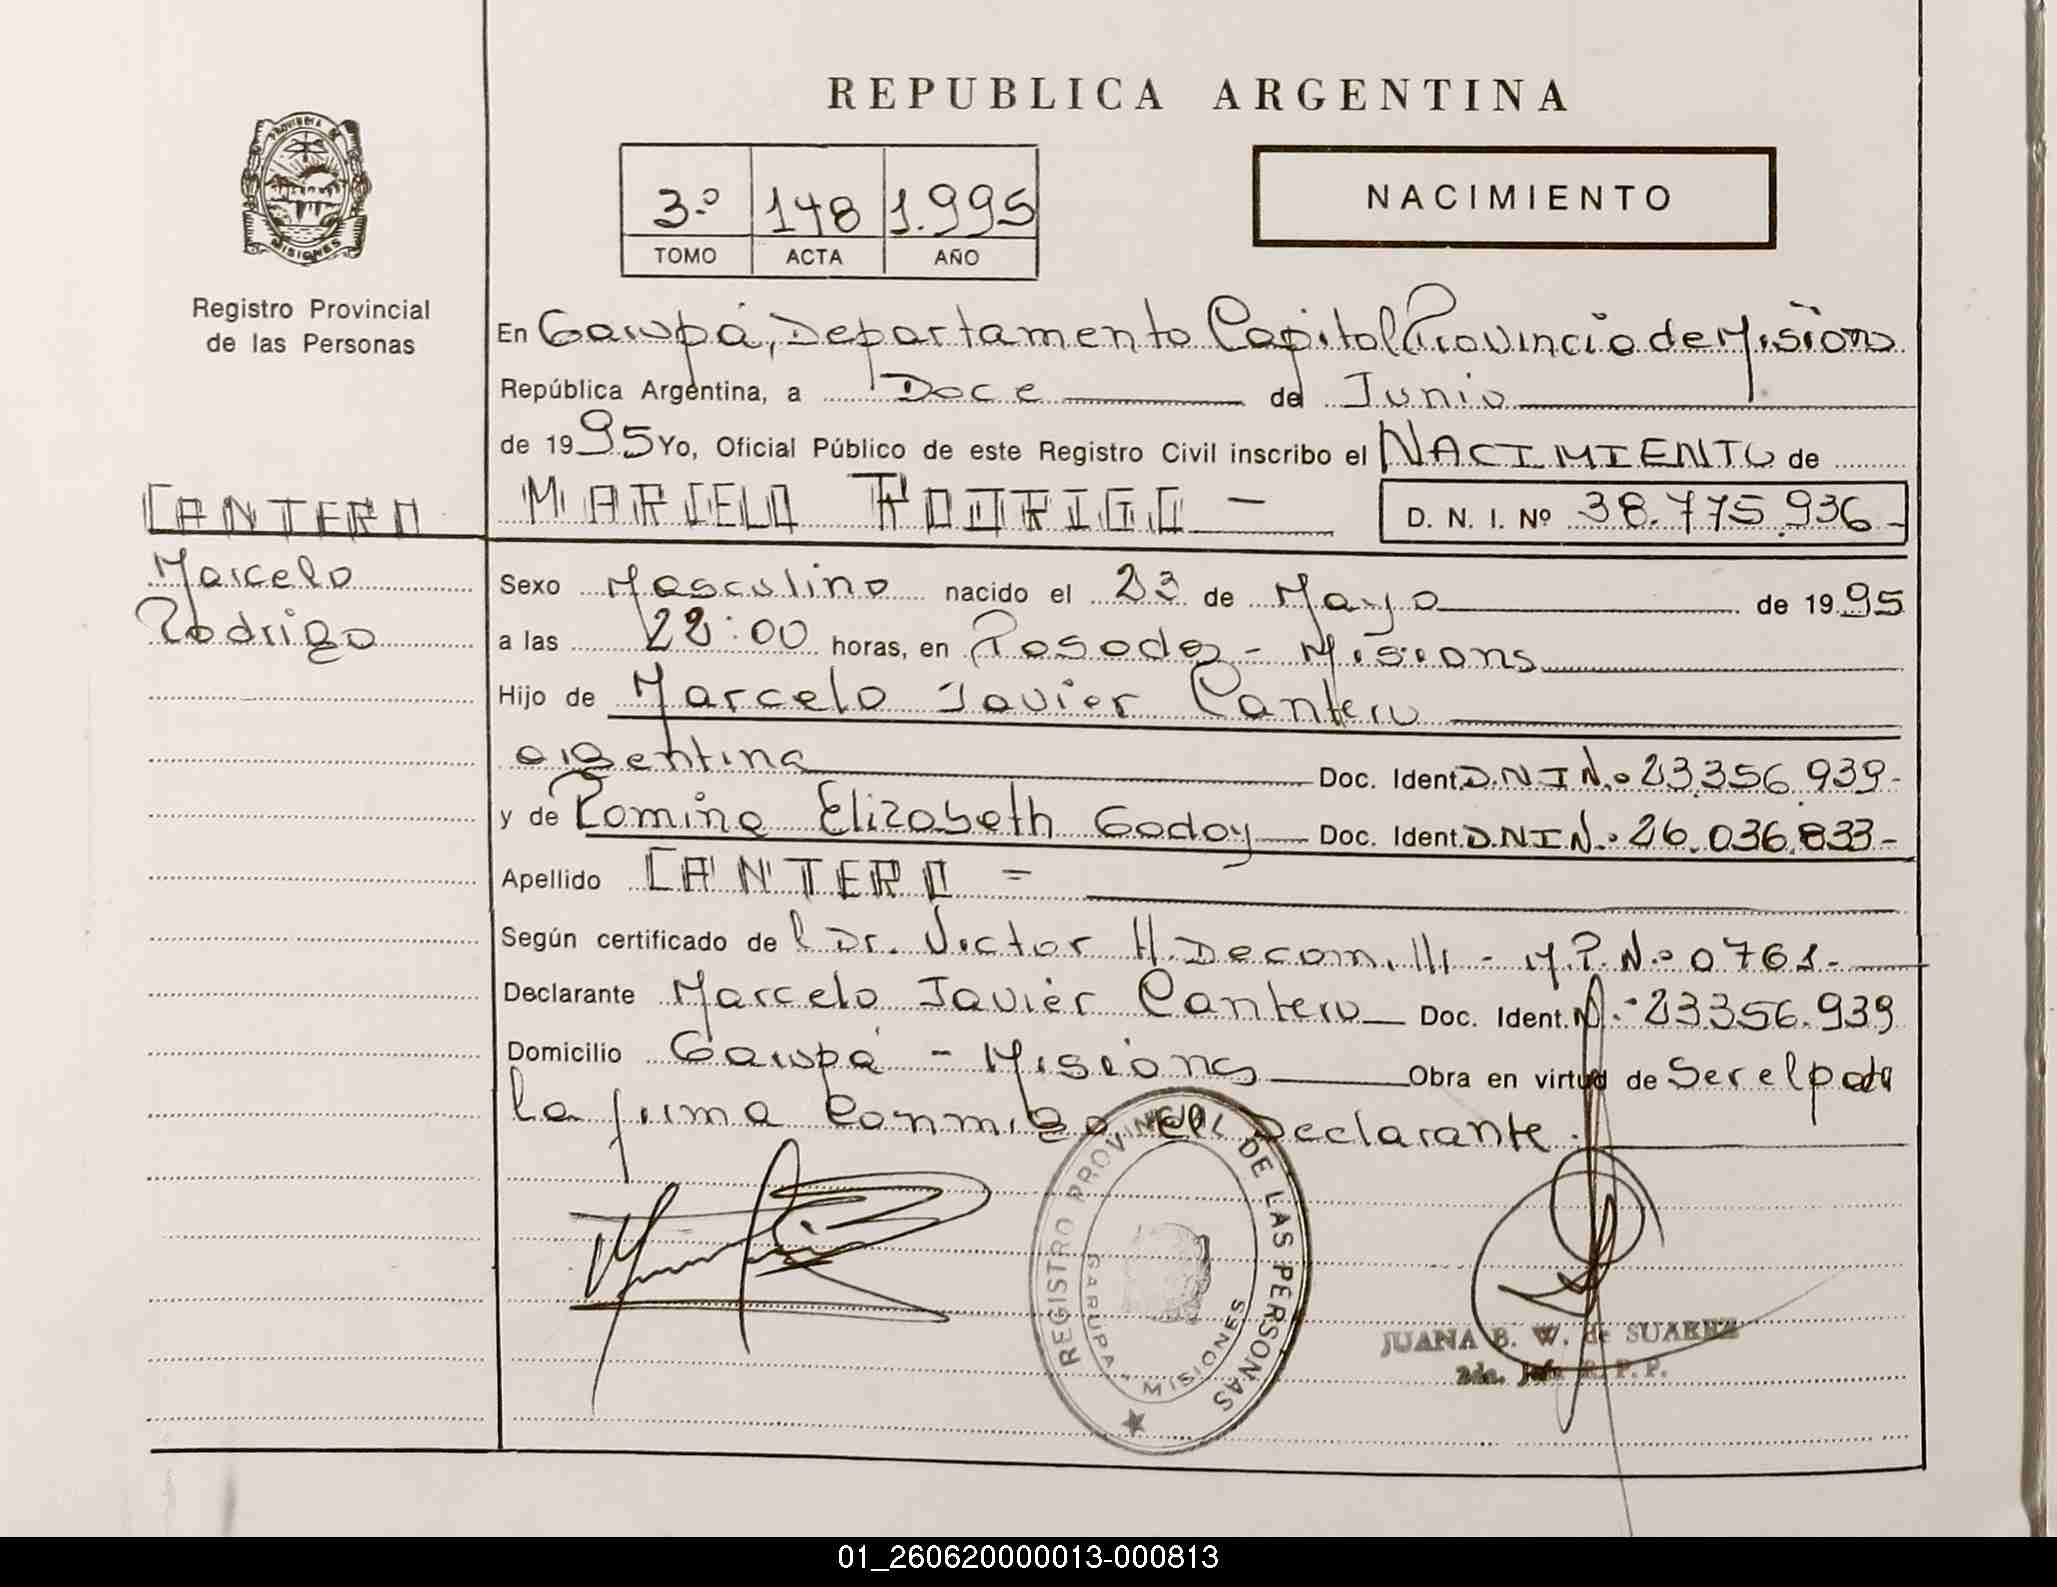 REPUBLICA ARGENTINA
PROVINCIA DE
MISIONES
Registro Provincial
de las Personas
3.º 148 1.995
TOMO ACTA AÑO
NACIMIENTO
En Garupá, Departamento Capital Provincia de Misions
República Argentina, a Doce de Junio
de 1995 Yo, Oficial Público de este Registro Civil inscribo el NACIMIENTO de
CANTERO
Marcelo
Rodrigo
MARCELO RODRIGO -
D. N. I. Nº 38.775.936-
Sexo Masculino nacido el 23 de Mayo de 1995
a las 22:00 horas, en Posadas - Misions
Hijo de Marcelo Javier Cantero
argentina Doc. Ident. D.N.I N.º 23.356.939-
y de Romina Elizabeth Godoy Doc. Ident. D.N.I N.º 26.036.833-
Apellido CANTERO =
Según certificado del Dr. Victor H. Decamilli - M.P.N.º 0761-
Declarante Marcelo Javier Cantero Doc. Ident. N.º 23356.939
Domicilio Garupá - Misions Obra en virtud de Ser el pada
la firma Conmigo, el Declarante.
REGISTRO PROVINCIAL DE LAS PERSONAS
GARUPA - MISIONES
JUANA B. W. de SUAREZ
2da. Jefa R. P. P.
01_260620000013-000813